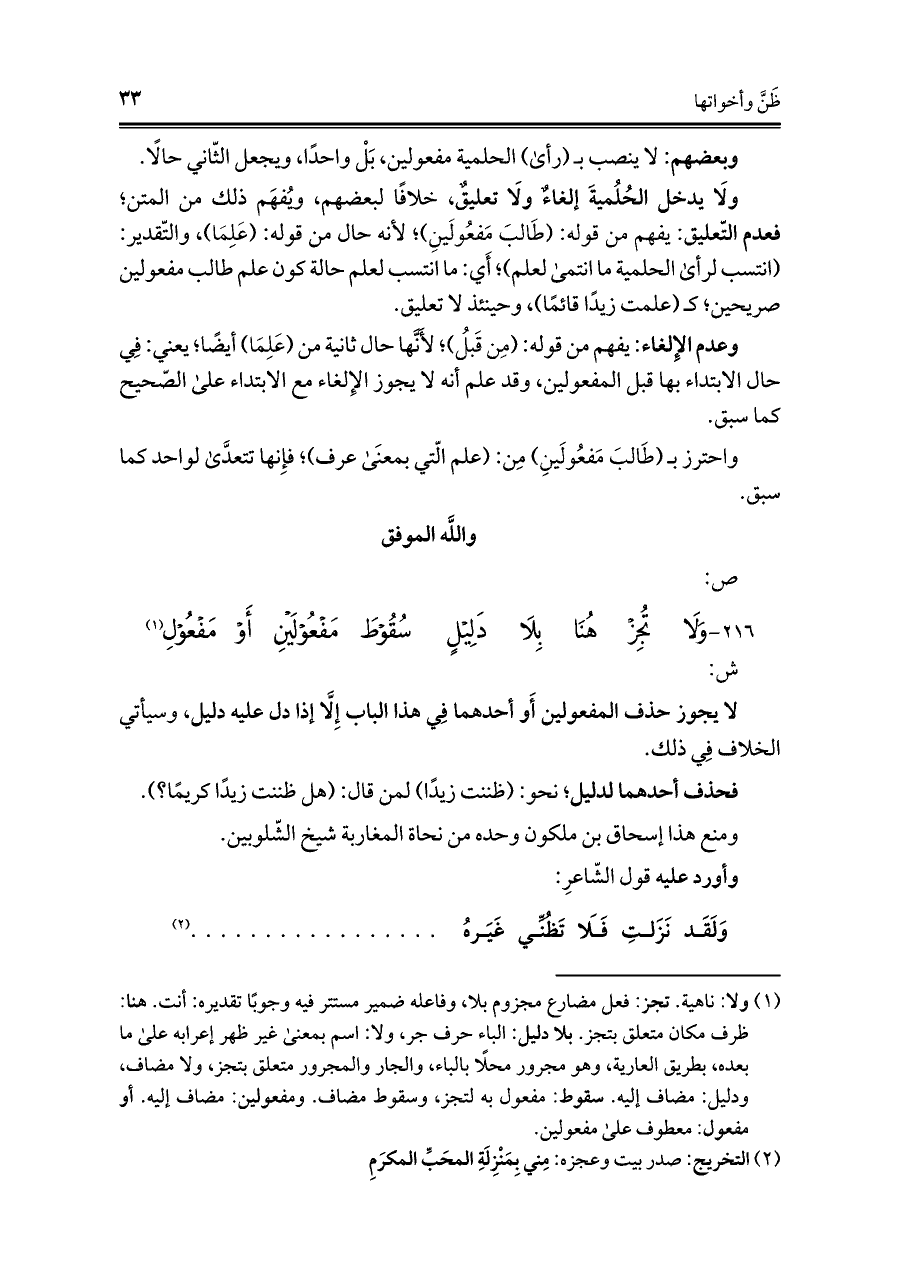 ظَنَّ وأخواتها ٣٣
وبعضهم: لا ينصب بـ (رأىٰ) الحلمية مفعولين، بَلْ واحدًا، ويجعل الثّاني حالًا.
ولَا يدخل الحُلُميةَ إلغاءٌ ولَا تعليقٌ، خلافًا لبعضهم، ويُفهَم ذلك من المتن؛
فعدم التّعليق: يفهم من قوله: (طَالبَ مَفعُولَينِ)؛ لأنه حال من قوله: (عَلِمَا)، والتّقدير:
(انتسب لرأىٰ الحلمية ما انتمىٰ لعلم)؛ أَي: ما انتسب لعلم حالة كون علم طالب مفعولين
صريحين؛ كـ (علمت زيدًا قائمًا)، وحينئذ لا تعليق.
وعدم الإِلغاء: يفهم من قوله: (مِن قَبلُ)؛ لأَنَّها حال ثانية من (عَلِمَا) أيضًا؛ يعني: فِي
حال الابتداء بها قبل المفعولين، وقد علم أنه لا يجوز الإِلغاء مع الابتداء علىٰ الصّحيح
كما سبق.
واحترز بـ (طَالبَ مَفعُولَينِ) مِن: (علم الّتي بمعنَىٰ عرف)؛ فإِنها تتعدَّىٰ لواحد كما
سبق.
واللَّه الموفق
ص:
٢١٦-وَلَا تُجِزْ هُنَا بِلَا دَلِيْلٍ سُقُوْطَ مَفْعُوْلَيْنِ أَوْ مَفْعُوْلِ(١)
ش:
لا يجوز حذف المفعولين أَو أحدهما فِي هذا الباب إِلَّا إذا دل عليه دليل، وسيأتي
الخلاف فِي ذلك.
فحذف أحدهما لدليل؛ نحو: (ظننت زيدًا) لمن قال: (هل ظننت زيدًا كريمًا؟).
ومنع هذا إسحاق بن ملكون وحده من نحاة المغاربة شيخ الشّلوبين.
وأورد عليه قول الشّاعرِ:
وَلَقَـد نَزَلـتِ فَـلَا تَظُنِّـي غَيَـرهُ . . . . . . . . . . . . . . . . .(٢)
(١) ولا: ناهية. تجز: فعل مضارع مجزوم بلا، وفاعله ضمير مستتر فيه وجوبًا تقديره: أنت. هنا:
ظرف مكان متعلق بتجز. بلا دليل: الباء حرف جر، ولا: اسم بمعنىٰ غير ظهر إعرابه علىٰ ما
بعده، بطريق العارية، وهو مجرور محلًا بالباء، والجار والمجرور متعلق بتجز، ولا مضاف،
ودليل: مضاف إليه. سقوط: مفعول به لتجز، وسقوط مضاف. ومفعولين: مضاف إليه. أو
مفعول: معطوف علىٰ مفعولين.
(٢) التخريج: صدر بيت وعجزه: مِني بِمَنْزِلَةِ المحَبِّ المكرَمِ